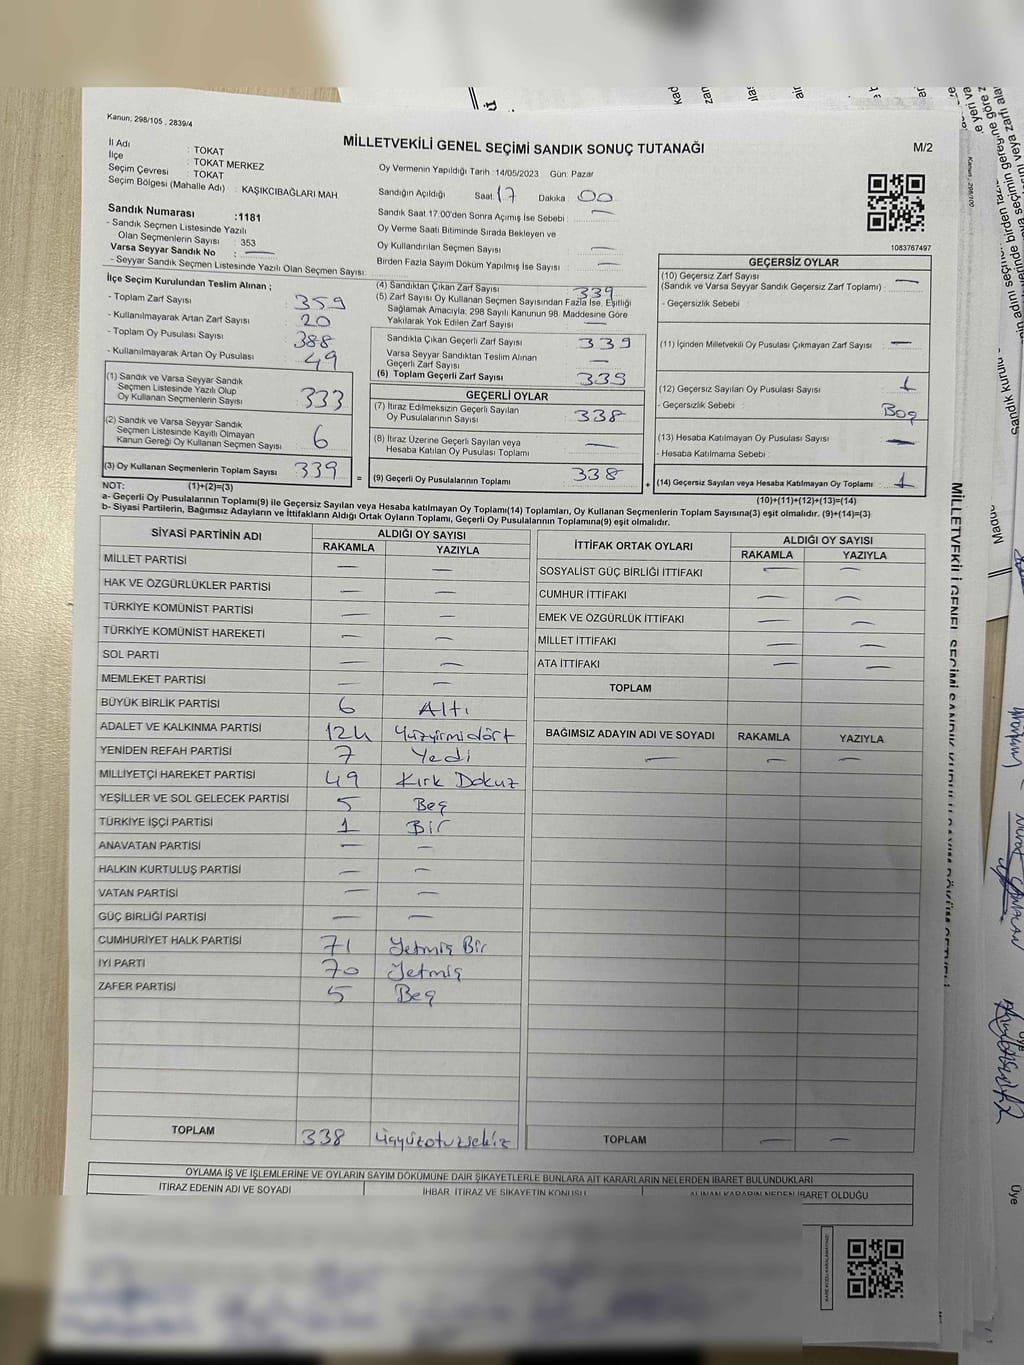 Kanun; 298/105 , 2839/4
MİLLETVEKİLİ GENEL SEÇİMİ SANDIK SONUÇ TUTANAĞI
M/2
İl Adı : TOKAT
İlçe : TOKAT MERKEZ
Seçim Çevresi : TOKAT
Seçim Bölgesi (Mahalle Adı) : KAŞIKCIBAĞLARI MAH.
Oy Vermenin Yapıldığı Tarih :14/05/2023 Gün: Pazar
Sandığın Açıldığı Saat: 17 Dakika : 00
Sandık Saat 17.00'den Sonra Açımış İse Sebebi : —
Oy Verme Saati Bitiminde Sırada Bekleyen ve
Oy Kullandırılan Seçmen Sayısı —
Birden Fazla Sayım Döküm Yapılmış İse Sayısı : —
1083767497
Sandık Numarası :1181
- Sandık Seçmen Listesinde Yazılı
Olan Seçmenlerin Sayısı : 353
Varsa Seyyar Sandık No : —
- Seyyar Sandık Seçmen Listesinde Yazılı Olan Seçmen Sayısı:
İlçe Seçim Kurulundan Teslim Alınan ;
- Toplam Zarf Sayısı : 359
- Kullanılmayarak Artan Zarf Sayısı : 20
- Toplam Oy Pusulası Sayısı : 388
- Kullanılmayarak Artan Oy Pusulası : 49
(1) Sandık ve Varsa Seyyar Sandık
Seçmen Listesinde Yazılı Olup
Oy Kullanan Seçmenlerin Sayısı : 333
(2) Sandık ve Varsa Seyyar Sandık
Seçmen Listesinde Kayıtlı Olmayan
Kanun Gereği Oy Kullanan Seçmen Sayısı : 6
(3) Oy Kullanan Seçmenlerin Toplam Sayısı : 339
(4) Sandıktan Çıkan Zarf Sayısı : 339
(5) Zarf Sayısı Oy Kullanan Seçmen Sayısından Fazla İse, Eşitliği
Sağlamak Amacıyla; 298 Sayılı Kanunun 98. Maddesine Göre
Yakılarak Yok Edilen Zarf Sayısı : —
Sandıkta Çıkan Geçerli Zarf Sayısı : 339
Varsa Seyyar Sandıktan Teslim Alınan
Geçerli Zarf Sayısı : —
(6) Toplam Geçerli Zarf Sayısı : 339
GEÇERLİ OYLAR
(7) İtiraz Edilmeksizin Geçerli Sayılan
Oy Pusulalarının Sayısı : 338
(8) İtiraz Üzerine Geçerli Sayılan veya
Hesaba Katılan Oy Pusulası Toplamı : —
= (9) Geçerli Oy Pusulalarının Toplamı : 338
GEÇERSİZ OYLAR
(10) Geçersiz Zarf Sayısı
(Sandık ve Varsa Seyyar Sandık Geçersiz Zarf Toplamı) : —
- Geçersizlik Sebebi :
(11) İçinden Milletvekili Oy Pusulası Çıkmayan Zarf Sayısı : —
(12) Geçersiz Sayılan Oy Pusulası Sayısı : 1
- Geçersizlik Sebebi : Boş
(13) Hesaba Katılmayan Oy Pusulası Sayısı : —
- Hesaba Katılmama Sebebi :
+ (14) Geçersiz Sayılan veya Hesaba Katılmayan Oy Toplamı : 1
NOT: (1)+(2)=(3)
(10)+(11)+(12)+(13)=(14)
a- Geçerli Oy Pusulalarının Toplamı(9) ile Geçersiz Sayılan veya Hesaba katılmayan Oy Toplamı(14) Toplamları, Oy Kullanan Seçmenlerin Toplam Sayısına(3) eşit olmalıdır. (9)+(14)=(3)
b- Siyasi Partilerin, Bağımsız Adayların ve İttifakların Aldığı Ortak Oyların Toplamı, Geçerli Oy Pusulalarının Toplamına(9) eşit olmalıdır.
SİYASİ PARTİNİN ADI ALDIĞI OY SAYISI
RAKAMLA YAZIYLA
MİLLET PARTİSİ — —
HAK VE ÖZGÜRLÜKLER PARTİSİ — —
TÜRKİYE KOMÜNİST PARTİSİ — —
TÜRKİYE KOMÜNİST HAREKETİ — —
SOL PARTİ — —
MEMLEKET PARTİSİ — —
BÜYÜK BİRLİK PARTİSİ 6 Altı
ADALET VE KALKINMA PARTİSİ 124 Yüzyirmidört
YENİDEN REFAH PARTİSİ 7 Yedi
MİLLİYETÇİ HAREKET PARTİSİ 49 Kırk Dokuz
YEŞİLLER VE SOL GELECEK PARTİSİ 5 Beş
TÜRKİYE İŞÇİ PARTİSİ 1 Bir
ANAVATAN PARTİSİ — —
HALKIN KURTULUŞ PARTİSİ — —
VATAN PARTİSİ — —
GÜÇ BİRLİĞİ PARTİSİ — —
CUMHURİYET HALK PARTİSİ 71 Yetmiş Bir
İYİ PARTİ 70 Yetmiş
ZAFER PARTİSİ 5 Beş
TOPLAM 338 üçyüzotuzsekiz
İTTİFAK ORTAK OYLARI ALDIĞI OY SAYISI
RAKAMLA YAZIYLA
SOSYALİST GÜÇ BİRLİĞİ İTTİFAKI — —
CUMHUR İTTİFAKI — —
EMEK VE ÖZGÜRLÜK İTTİFAKI — —
MİLLET İTTİFAKI — —
ATA İTTİFAKI — —
TOPLAM
BAĞIMSIZ ADAYIN ADI VE SOYADI RAKAMLA YAZIYLA
— — —
TOPLAM — —
OYLAMA İŞ VE İŞLEMLERİNE VE OYLARIN SAYIM DÖKÜMÜNE DAİR ŞİKAYETLERLE BUNLARA AİT KARARLARIN NELERDEN İBARET BULUNDUKLARI
İTİRAZ EDENİN ADI VE SOYADI İHBAR, İTİRAZ VE ŞİKAYETİN KONUSU ALINAN KARARIN NEDEN İBARET OLDUĞU
MİLLETVEKİLİ GENEL SEÇİMİ SANDIK KURULU SAYIM DÖKÜM CETVELİ
Kanun; 298/100
Sandık Kurulu
Üye
Üye